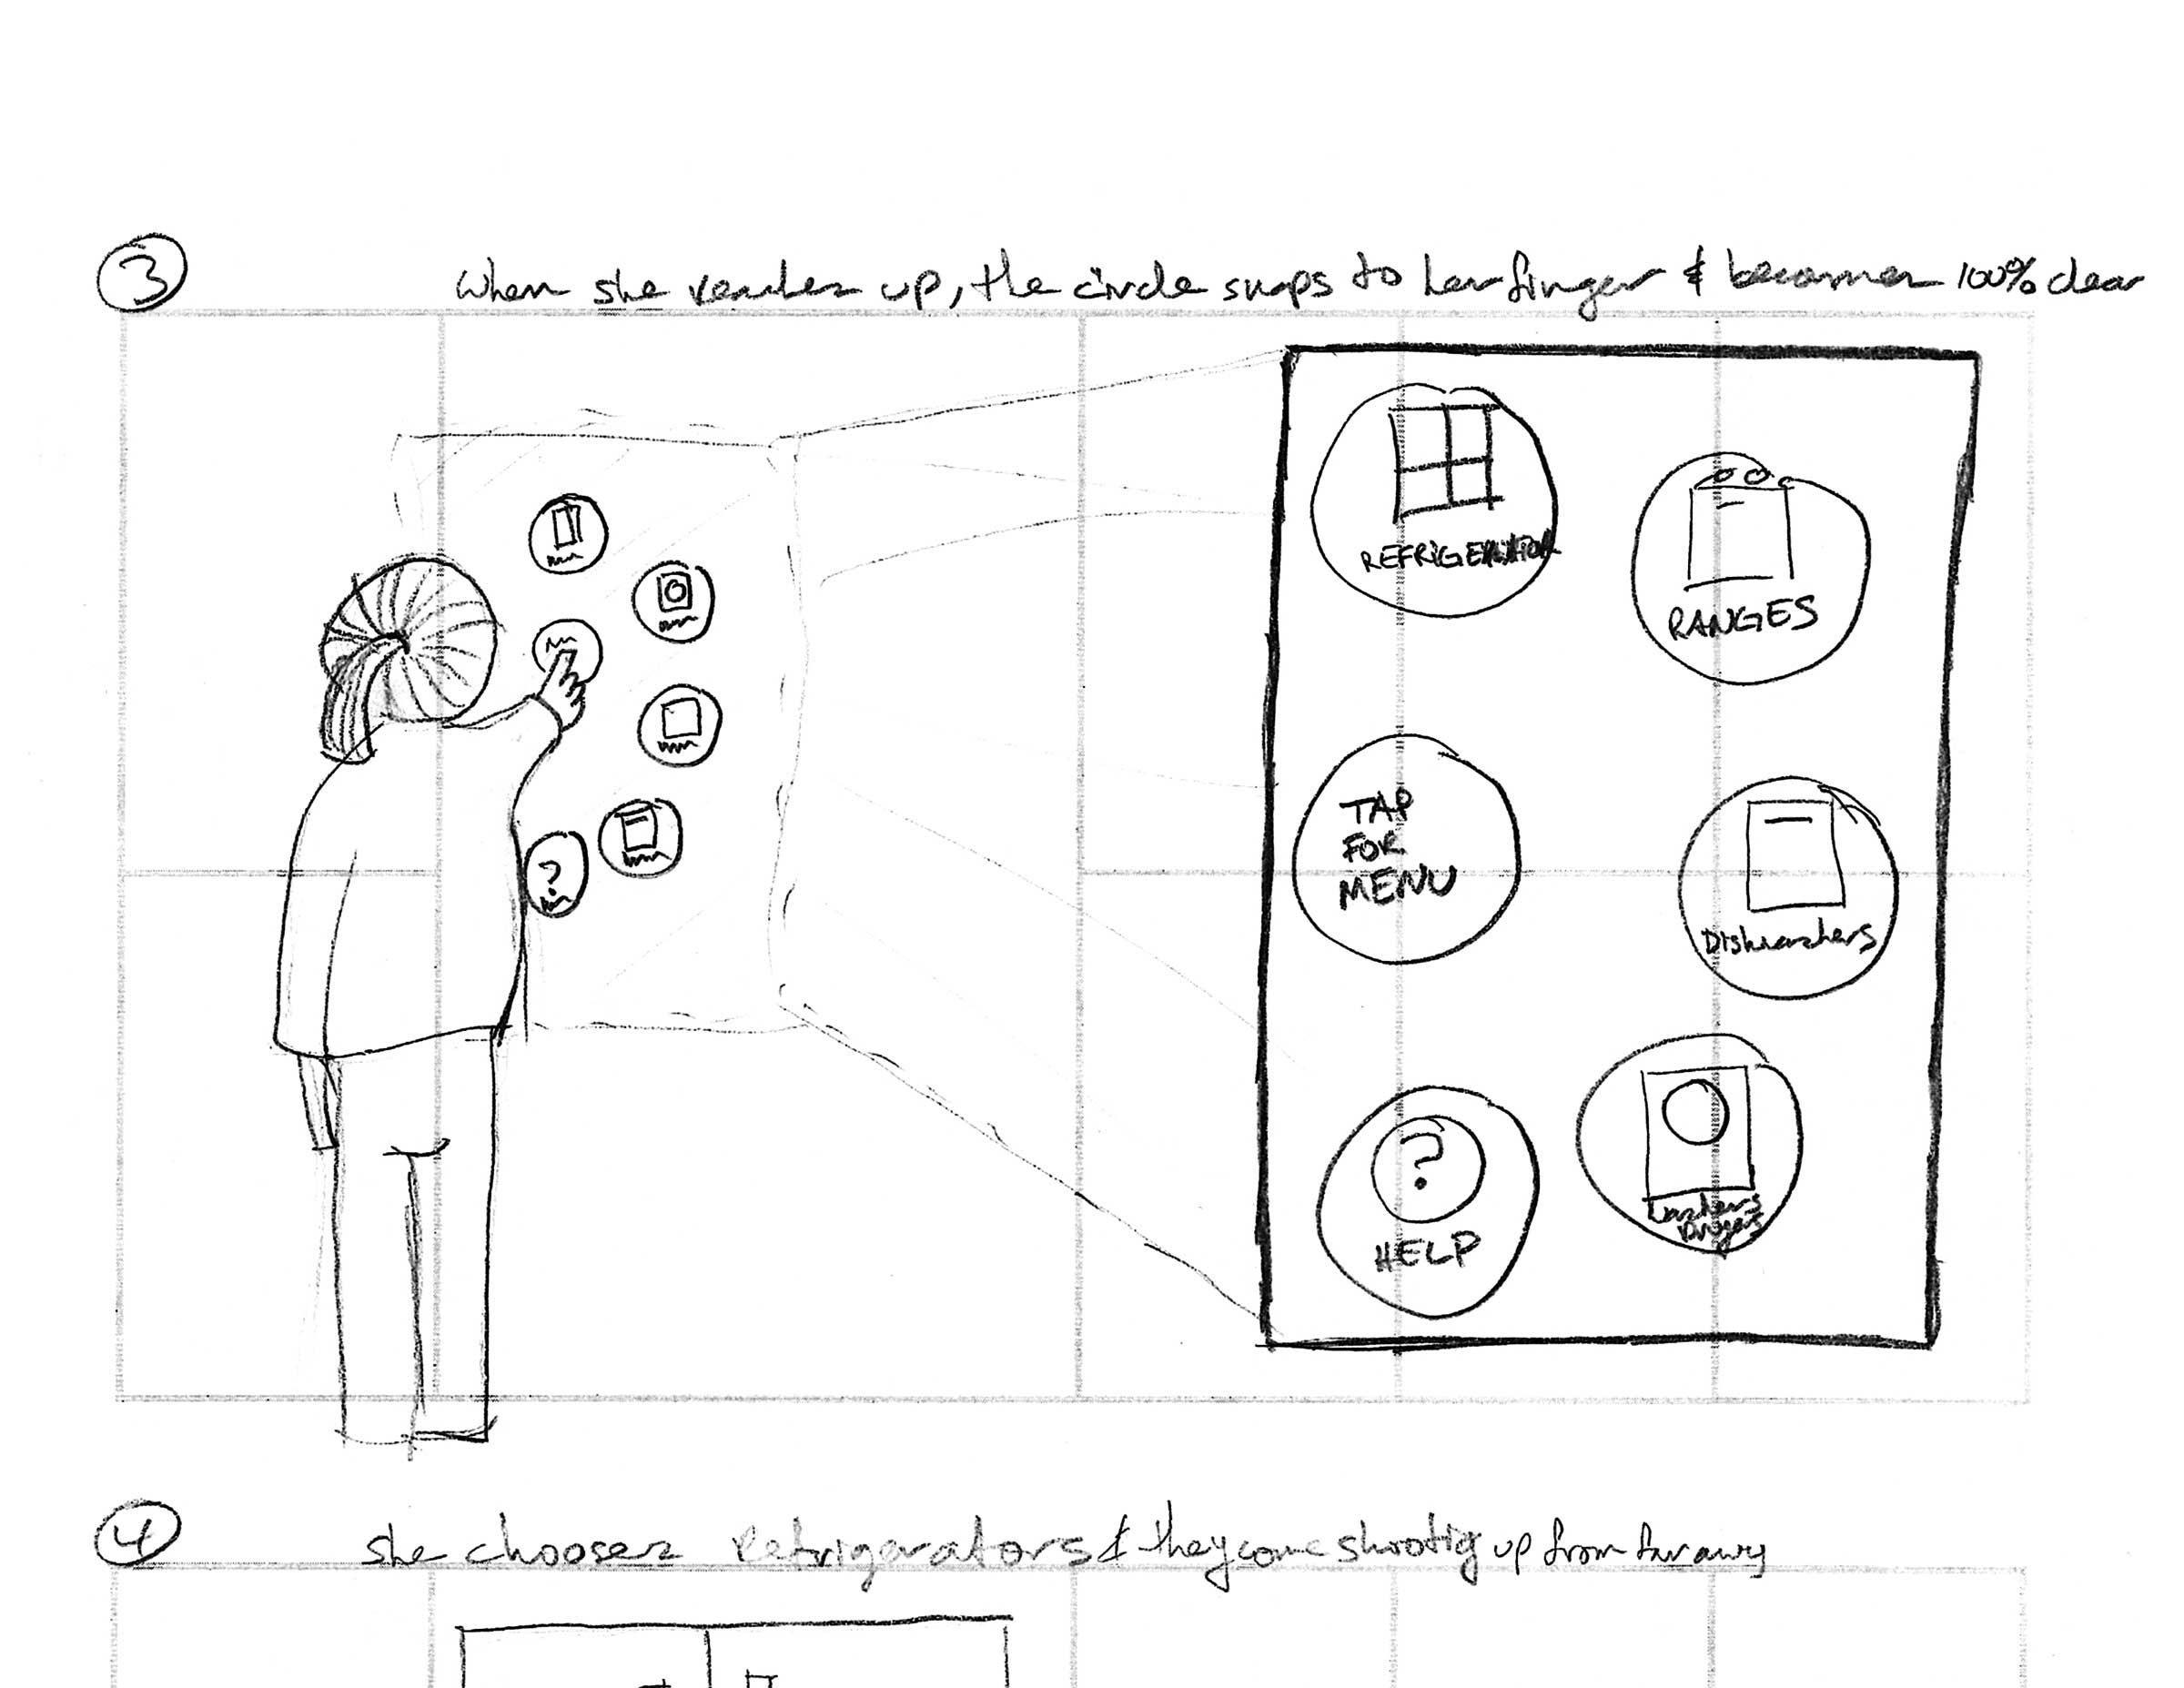 3
When she reaches up, the circle snaps to her finger & becomes 100% clear
REFRIGERATOR
RANGES
TAP
FOR
MENU
Dishwashers
?
HELP
Washers
Dryers
?
4
she chooses refrigerators & they come shooting up from far away